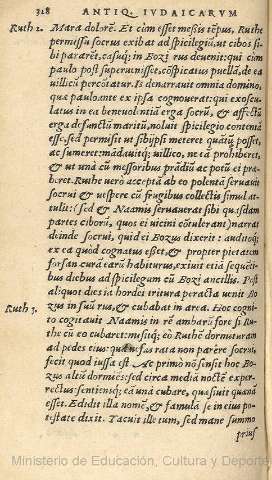 328 ANTIQ. IVDAICARVM
Ruth 2. Mara dolorẽ. Et cùm esset meßis tẽpus, Ruthe
permissu socrus exibat ad spicilegiũ, ut cibos si-
bi pararẽt, casuq́; in Eozi rus deuenit: qui cùm
paulo pòst superuenisset, cõspicatus puellã, de ea
uillicũ percõtatur. Is denarrauit omnia domino,
quæ paulo ante ex ipsa cognouerat: qui exoscu-
latus in ea beneuolentiã erga socrũ, & affectũ
erga defunctũ maritũ, noluit spicilegio contentã
esse, sed permisit ut sibijpsi meteret quãtũ posset,
ac sumeret: mãdauitq́; uillico, ne eã prohiberet,
& ut unà cũ messoribus prãdiũ ac potũ ei præ-
beret. Ruthe verò acceptã ab eo polentã seruauit
socrui & uespere cũ frugibus collectis simul at-
tulit: sed & Naamis seruauerat sibi quasdam
partes ciborũ, quos ei uicini cõtulerant) narrat
deinde socrui, quid ei Eozus dixerit: auditoq́;
ex ea quòd cognatus esset, & propter pietatem
forsan curã earũ habiturus, exiuit etiã sequẽti-
bus diebus ad spicilegum cũ Eozi ancillis. Post
aliquot dies ia hordei tritura peracta uenit Eo-
Ruth 3. zus in suũ rus, & cubabat in area. Hoc cogni-
to cogitauit Naamis in rẽ ambarũ fore si Ru-
the cũ eo cubaret: misitq́; eò Ruthẽ dormituram
ad pedes eius: quæ nefas rata non parẽre socrui,
fecit quod iussa est. Ac primò nõ sensit hoc Eo-
zus altũ dormiẽs: sed circa mediã noctẽ exper-
rectus sentiensq́; eã unà cubare, quæsiuit quænã
esset. Edidit illa nomẽ, & famulã se in eius po-
testate dixit. Tacuit ille tum, sed mane summo
prius
Ministerio de Educación, Cultura y Deporte